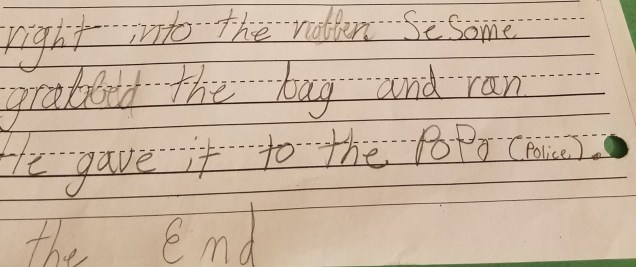 right into the rotten Sesome
grabbed the bag and ran
He gave it to the PoPo (Police).
the End